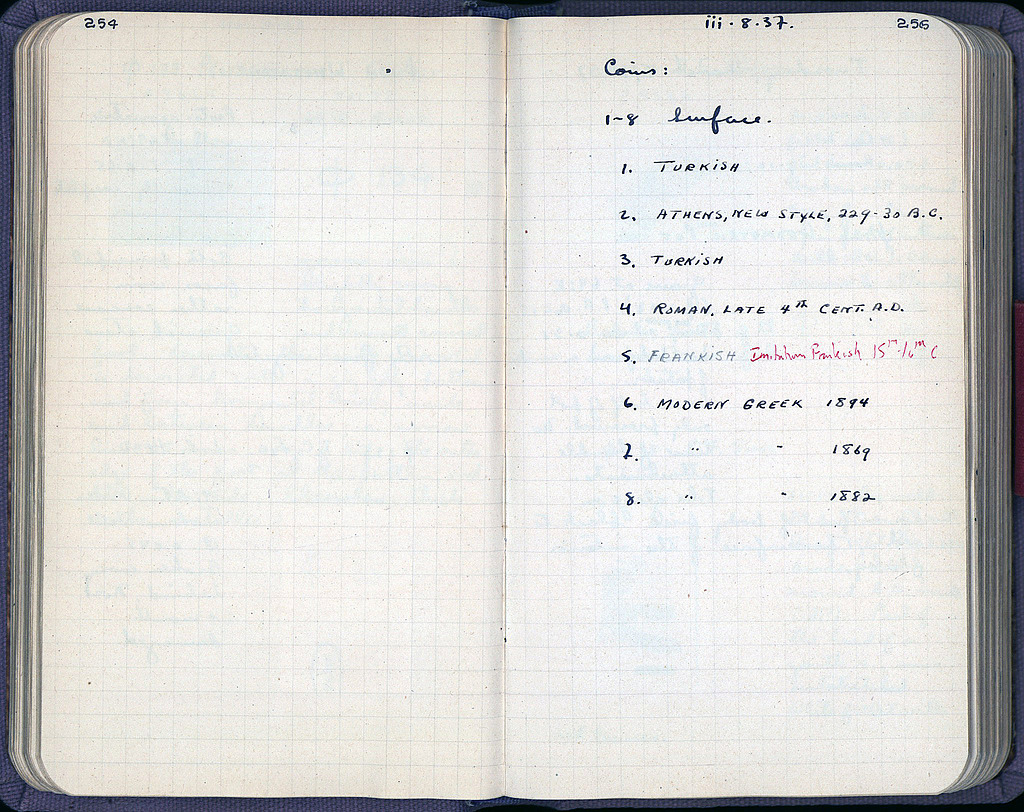 254
iii · 8 · 37.
256
Coins:
1-8 Surface.
1. TURKISH
2. ATHENS, NEW STYLE, 229-30 B.C.
3. TURKISH
4. ROMAN. LATE 4TH CENT. A.D.
5. FRANKISH Imitation Frankish 15th-16th C
6. MODERN GREEK 1894
7. " " 1869
8. " " 1882